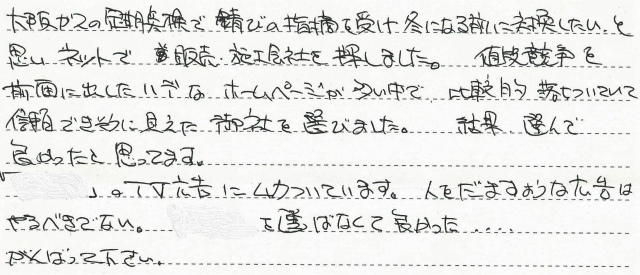 大阪ガスの定期点検で錆びの指摘を受け 冬になる前に交換したいと
思い ネットで 販売・施工会社を探しました。 値段競争を
前面に出したハデな ホームページが多い中で、比較的 落ちついていて
信頼できそうに見えた 御社を選びました。 結果 選んで
良かったと思ってます。
「 」のTV広告にムカついています。人をだますような広告は
やるべきでない。 を選ばなくて良かった....
がんばって下さい。